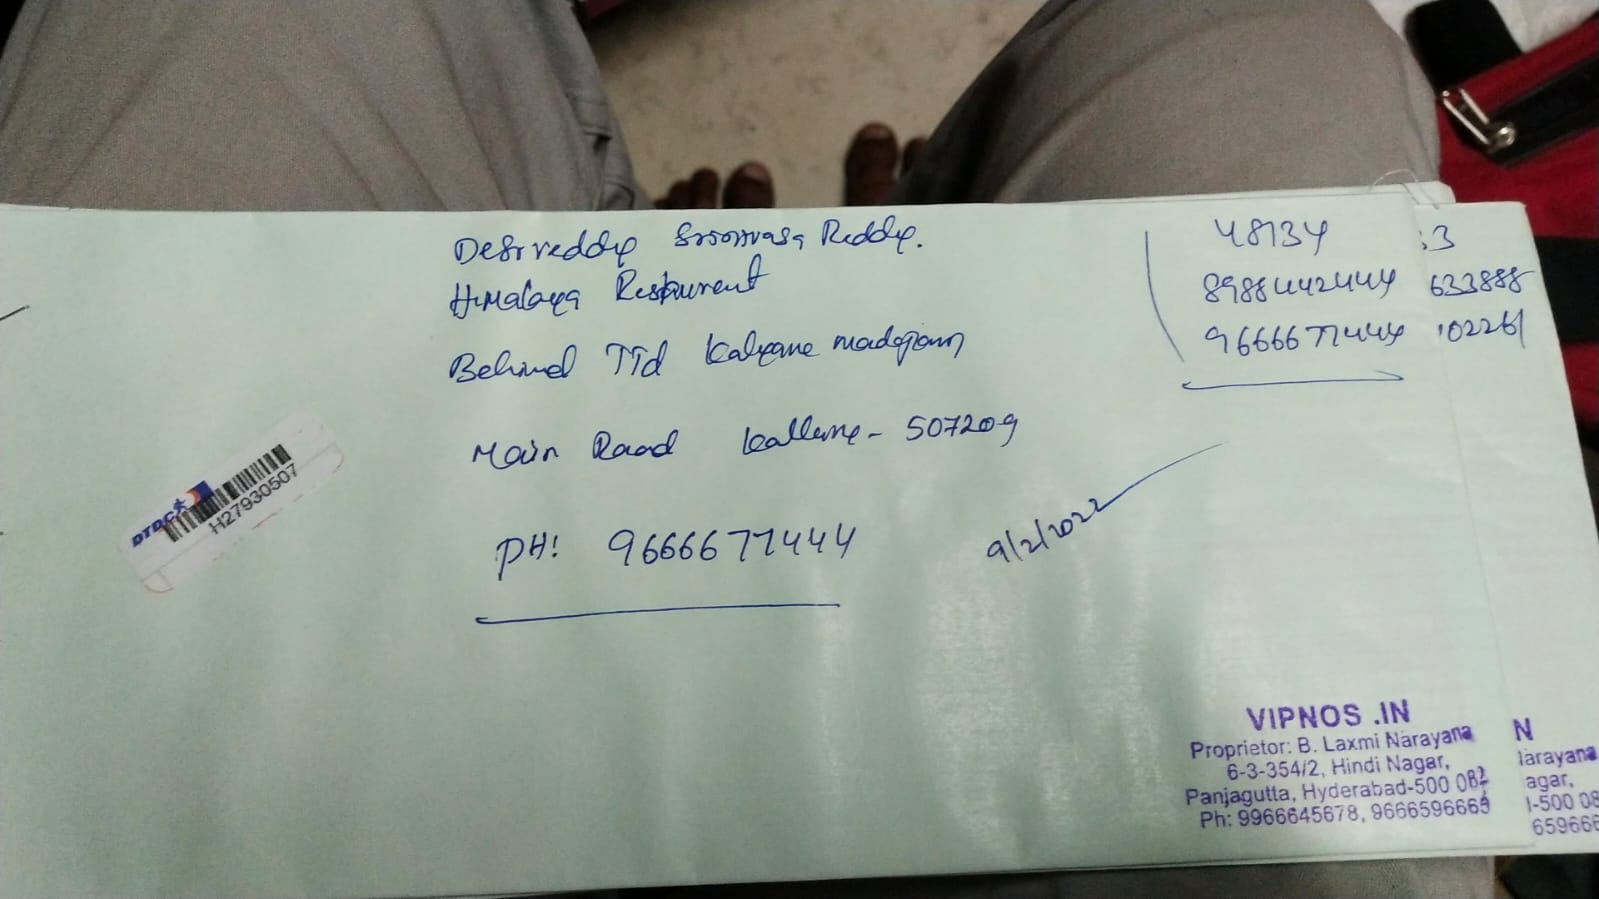 Desireddy Srinivasa Reddy.
Himalaya Restaurent
Behind TTd Kalyana madapam
Main Road Kalluru - 507209
PH: 9666677444
9/2/2022
48134
8988442444
9666677444
:3
633888
102261
DTDC
H27930507
VIPNOS .IN
Proprietor: B. Laxmi Narayana
6-3-354/2, Hindi Nagar,
Panjagutta, Hyderabad-500 082
Ph: 9966645678, 9666596665
N
larayana
agar,
l-500 08
659666